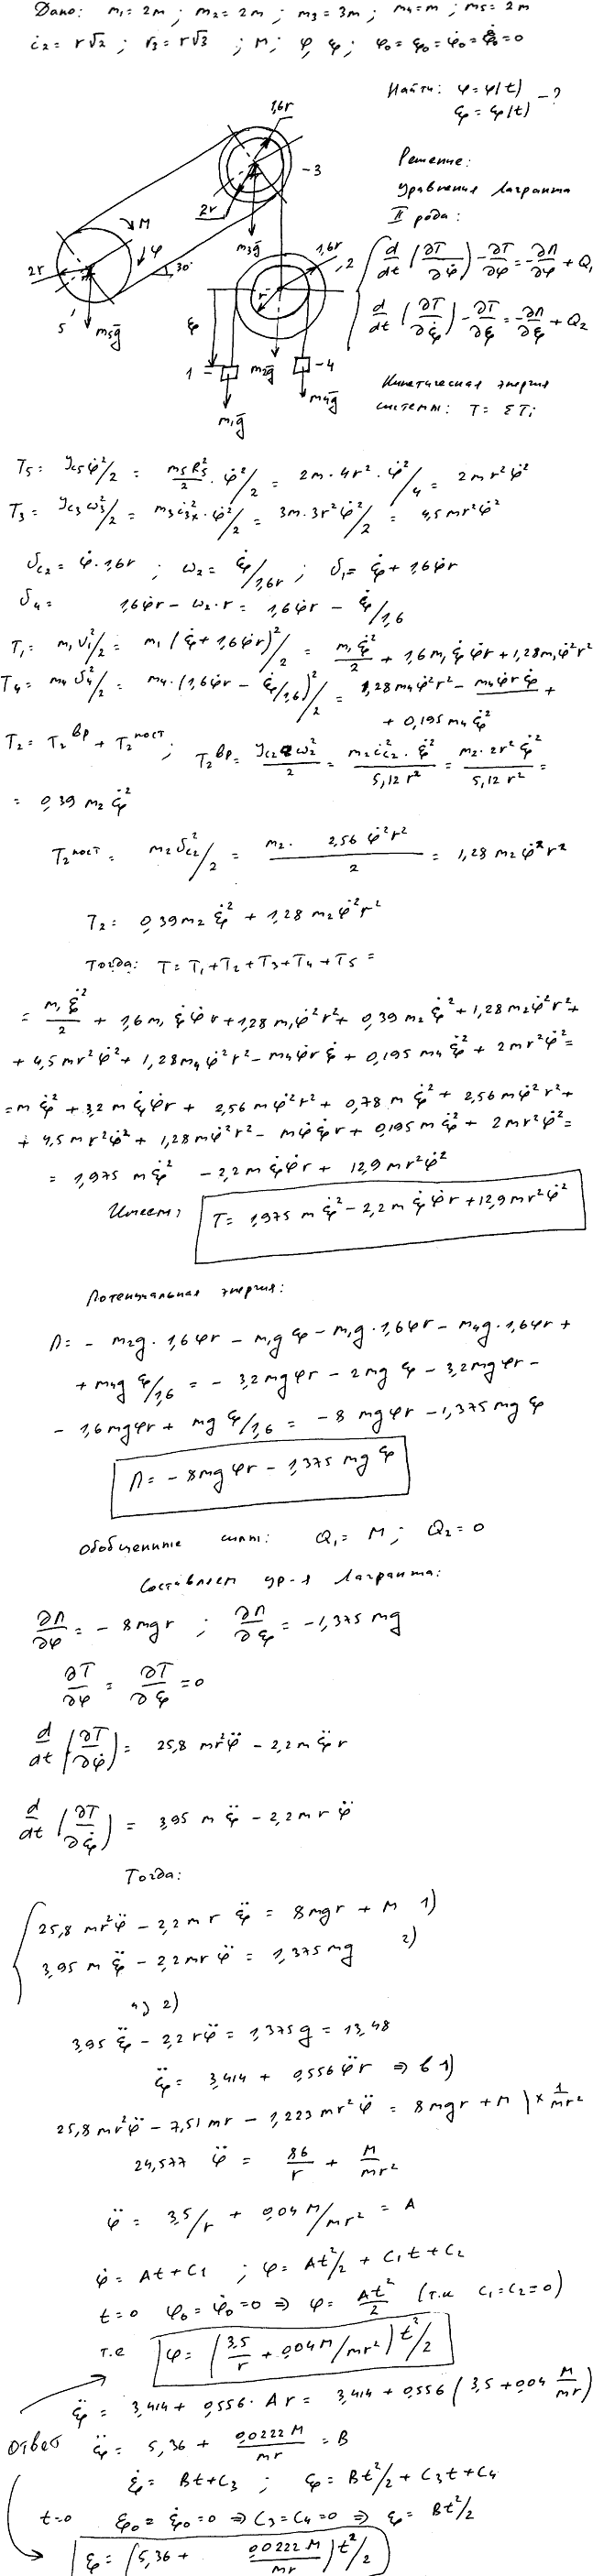 Дано: m₁ = 2m ; m₂ = 2m ; m₃ = 3m ; m₄ = m ; m₅ = 2m
i₂ = r√2 ; r₃ = r√3 ; M ; φ, ξ ; φ₀ = ξ₀ = φ̇₀ = ξ̇₀ = 0
Найти: φ = φ(t)
ξ = ξ(t) — ?
1,6r
- 3
2r
m₃g̅
M
φ
2r
30°
5
m₅g̅
1,6r
2
r
ξ
1
m₂g̅
-4
m₄g̅
m₁g̅
Решение:
уравнения Лагранжа
II рода:
d/dt (∂T/∂φ̇) - ∂T/∂φ = -∂П/∂φ + Q₁
d/dt (∂T/∂ξ̇) - ∂T/∂ξ = -∂П/∂ξ + Q₂
Кинетическая энергия
системы: T = ΣTᵢ
T₅ = Jc₅φ̇²/2 = m₅R₅²/2 · φ̇²/2 = 2m · 4r² · φ̇²/4 = 2mr²φ̇²
T₃ = Jc₃ω₃²/2 = m₃i₃ₓ² · φ̇²/2 = 3m · 3r²φ̇²/2 = 4,5mr²φ̇²
υc₂ = φ̇ · 1,6r ; ω₂ = ξ̇/1,6r ; υ₁ = ξ̇ + 1,6φ̇r
υ₄ = 1,6φ̇r - ω₂ · r = 1,6φ̇r - ξ̇/1,6
T₁ = m₁υ₁²/2 = m₁(ξ̇ + 1,6φ̇r)²/2 = m₁ξ̇²/2 + 1,6m₁ξ̇φ̇r + 1,28m₁φ̇²r²
T₄ = m₄υ₄²/2 = m₄ · (1,6φ̇r - ξ̇/1,6)²/2 = 1,28m₄φ̇²r² - m₄φ̇rξ̇ +
+ 0,195m₄ξ̇²
T₂ = T₂ᵇᵖ + T₂ᵖᵒˢᵗ ; T₂ᵇᵖ = Jc₂ω₂²/2 = m₂i²c₂ · ξ̇²/5,12r² = m₂ · 2r²ξ̇²/5,12r² =
= 0,39m₂ξ̇²
T₂ᵖᵒˢᵗ = m₂υc₂²/2 = m₂ · 2,56φ̇²r²/2 = 1,28m₂φ̇²r²
T₂ = 0,39m₂ξ̇² + 1,28m₂φ̇²r²
Тогда: T = T₁ + T₂ + T₃ + T₄ + T₅ =
= m₁ξ̇²/2 + 1,6m₁ξ̇φ̇r + 1,28m₁φ̇²r² + 0,39m₂ξ̇² + 1,28m₂φ̇²r² +
+ 4,5mr²φ̇² + 1,28m₄φ̇²r² - m₄φ̇rξ̇ + 0,195m₄ξ̇² + 2mr²φ̇² =
= mξ̇² + 3,2mξ̇φ̇r + 2,56mφ̇²r² + 0,78mξ̇² + 2,56mφ̇²r² +
+ 4,5mr²φ̇² + 1,28mφ̇²r² - mφ̇ξ̇r + 0,195mξ̇² + 2mr²φ̇² =
= 1,975mξ̇² - 2,2mξ̇φ̇r + 12,9mr²φ̇²
Имеем: T = 1,975mξ̇² - 2,2mξ̇φ̇r + 12,9mr²φ̇²
Потенциальная энергия:
П = - m₂g · 1,6φr - m₁gξ - m₁g · 1,6φr - m₄g · 1,6φr +
+ m₄gξ/1,6 = - 3,2mgφr - 2mgξ - 3,2mgφr -
- 1,6mgφr + mgξ/1,6 = - 8mgφr - 1,375mgξ
П = - 8mgφr - 1,375mgξ
Обобщенные силы: Q₁ = M ; Q₂ = 0
Составляем ур-я Лагранжа:
∂П/∂φ = - 8mgr ; ∂П/∂ξ = - 1,375mg
∂T/∂φ = ∂T/∂ξ = 0
d/dt (∂T/∂φ̇) = 25,8mr²φ̈ - 2,2mξ̈r
d/dt (∂T/∂ξ̇) = 3,95mξ̈ - 2,2mrφ̈
Тогда:
25,8mr²φ̈ - 2,2mrξ̈ = 8mgr + M 1)
3,95mξ̈ - 2,2mrφ̈ = 1,375mg 2)
из 2)
3,95ξ̈ - 2,2rφ̈ = 1,375g = 13,48
ξ̈ = 3,414 + 0,556φ̈r ⇒ в 1)
25,8mr²φ̈ - 7,51mr - 1,223mr²φ̈ = 8mgr + M | × 1/mr²
24,577φ̈ = 86/r + M/mr²
φ̈ = 3,5/r + 0,04M/mr² = A
φ̇ = At + C₁ ; φ = At²/2 + C₁t + C₂
t = 0 φ₀ = φ̇₀ = 0 ⇒ φ = At²/2 (т.к C₁ = C₂ = 0)
т.е φ = (3,5/r + 0,04M/mr²) t²/2
ξ̈ = 3,414 + 0,556 · Ar = 3,414 + 0,556 (3,5 + 0,04 M/mr)
Ответ ξ̈ = 5,36 + 0,0222M/mr = B
ξ̇ = Bt + C₃ ; ξ = Bt²/2 + C₃t + C₄
t = 0 ξ₀ = ξ̇₀ = 0 ⇒ C₃ = C₄ = 0 ⇒ ξ = Bt²/2
ξ = (5,36 + 0,0222M/mr) t²/2